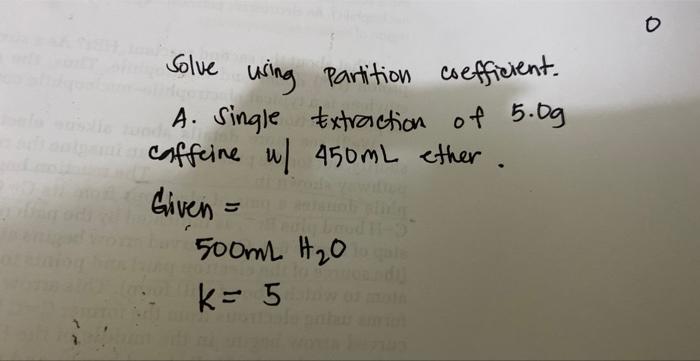 0
Solve using partition coefficient.
A. Single Extraction of 5.0g
caffeine w/ 450mL ether.
Given =
500mL H₂O
K = 5